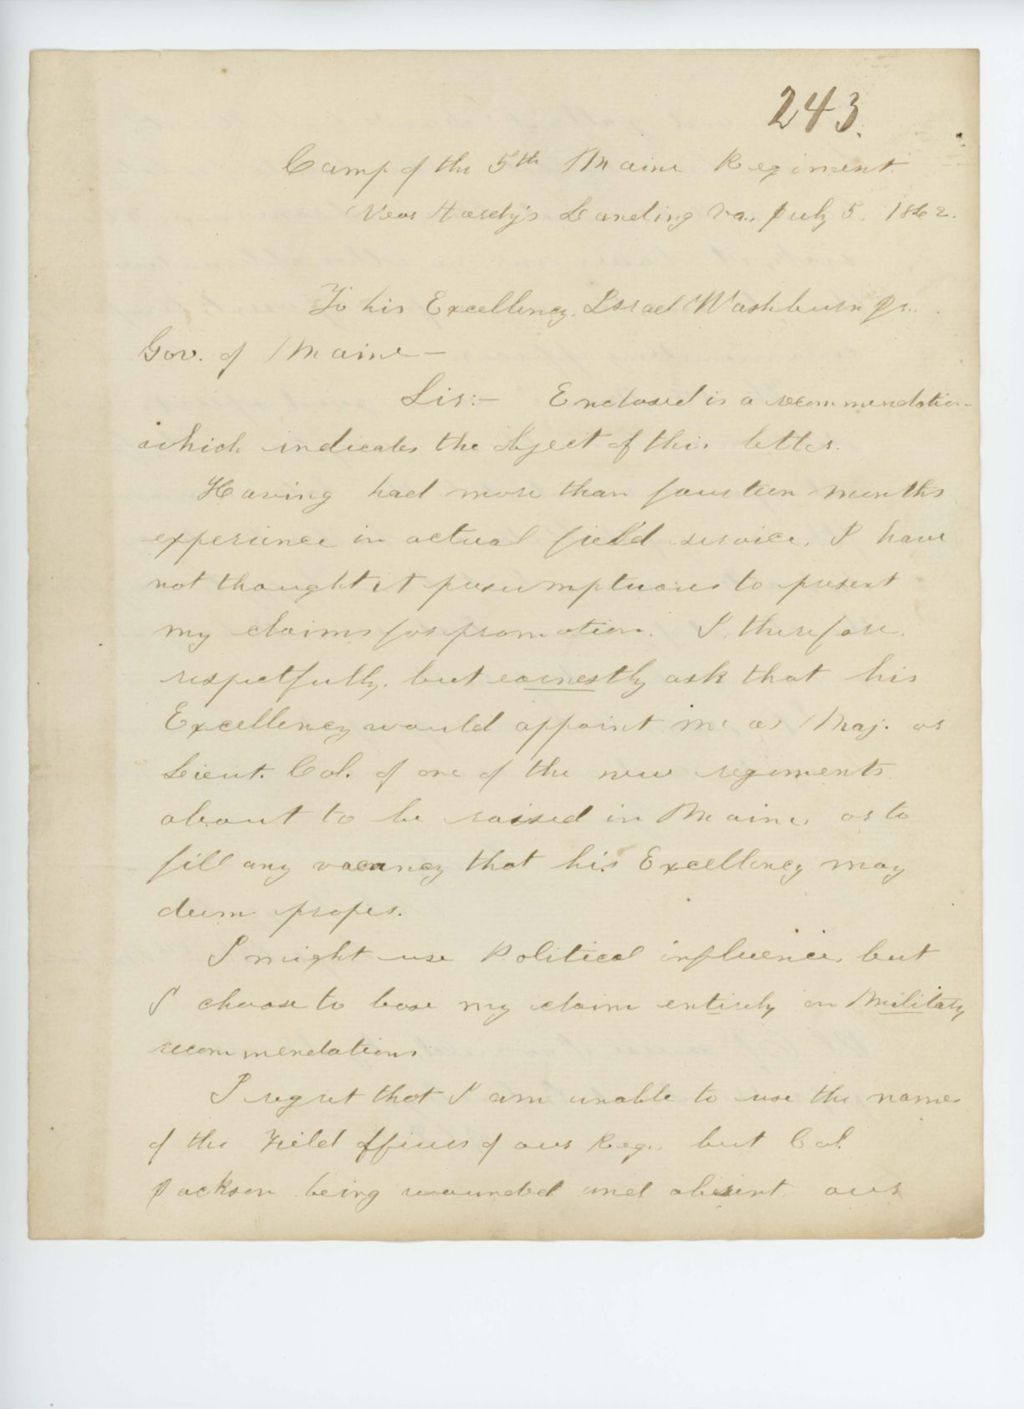 243.
Camp of the 5th Maine Regiment
Near Hardy's Landing Va., July 5. 1862.
To his Excellency, Israel Washburn Jr.
Gov. of Maine—
Sir:— Enclosed is a recommendation
which indicates the object of this letter.
Having had more than fourteen months
experience in actual field service, I have
not thought it presumptuous to present
my claims for promotion. I, therefore,
respectfully, but earnestly ask that his
Excellency would appoint me as Maj. or
Lieut. Col. of one of the new regiments
about to be raised in Maine, or to
fill any vacancy that his Excellency may
deem proper.
I might use Political influence, but
I choose to base my claim entirely on Military
recommendations
I regret that I am unable to use the names
of the Field Officers of our Reg., but Col.
Jackson being wounded and absent, our